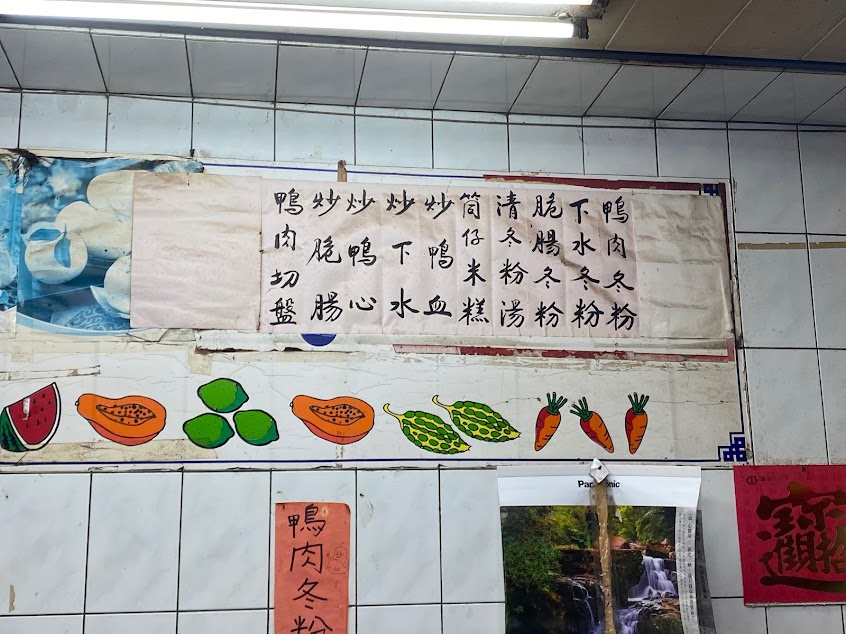 鴨肉冬粉
下水冬粉
脆腸冬粉
清冬粉湯
筒仔米糕
炒鴨血
炒下水
炒鴨心
炒脆腸
鴨肉切盤
鴨肉冬粉
Panasonic